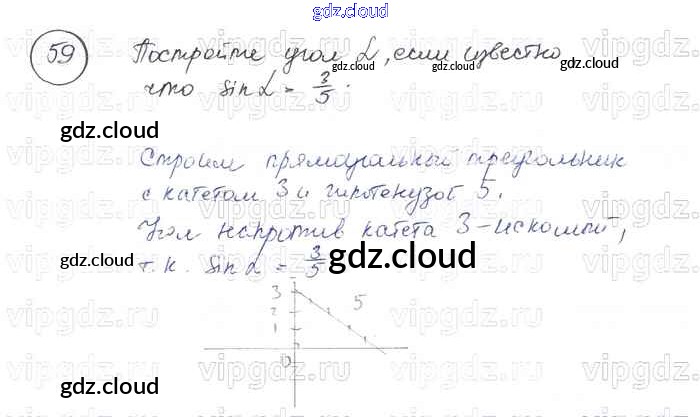 gdz.cloud
59 Постройте угол α, если известно
gdz.cloud gdz.cloud gdz.cloud
что sin α = 3/5.
gdz.cloud gdz.cloud
Строим прямоугольный треугольник
с катетом 3 и гипотенузой 5.
Угол напротив катета 3 - искомый,
т.к. sin α = 3/5
gdz.cloud
3 5
2
1
0
gdz.cloud gdz.cloud
vipgdz.ru